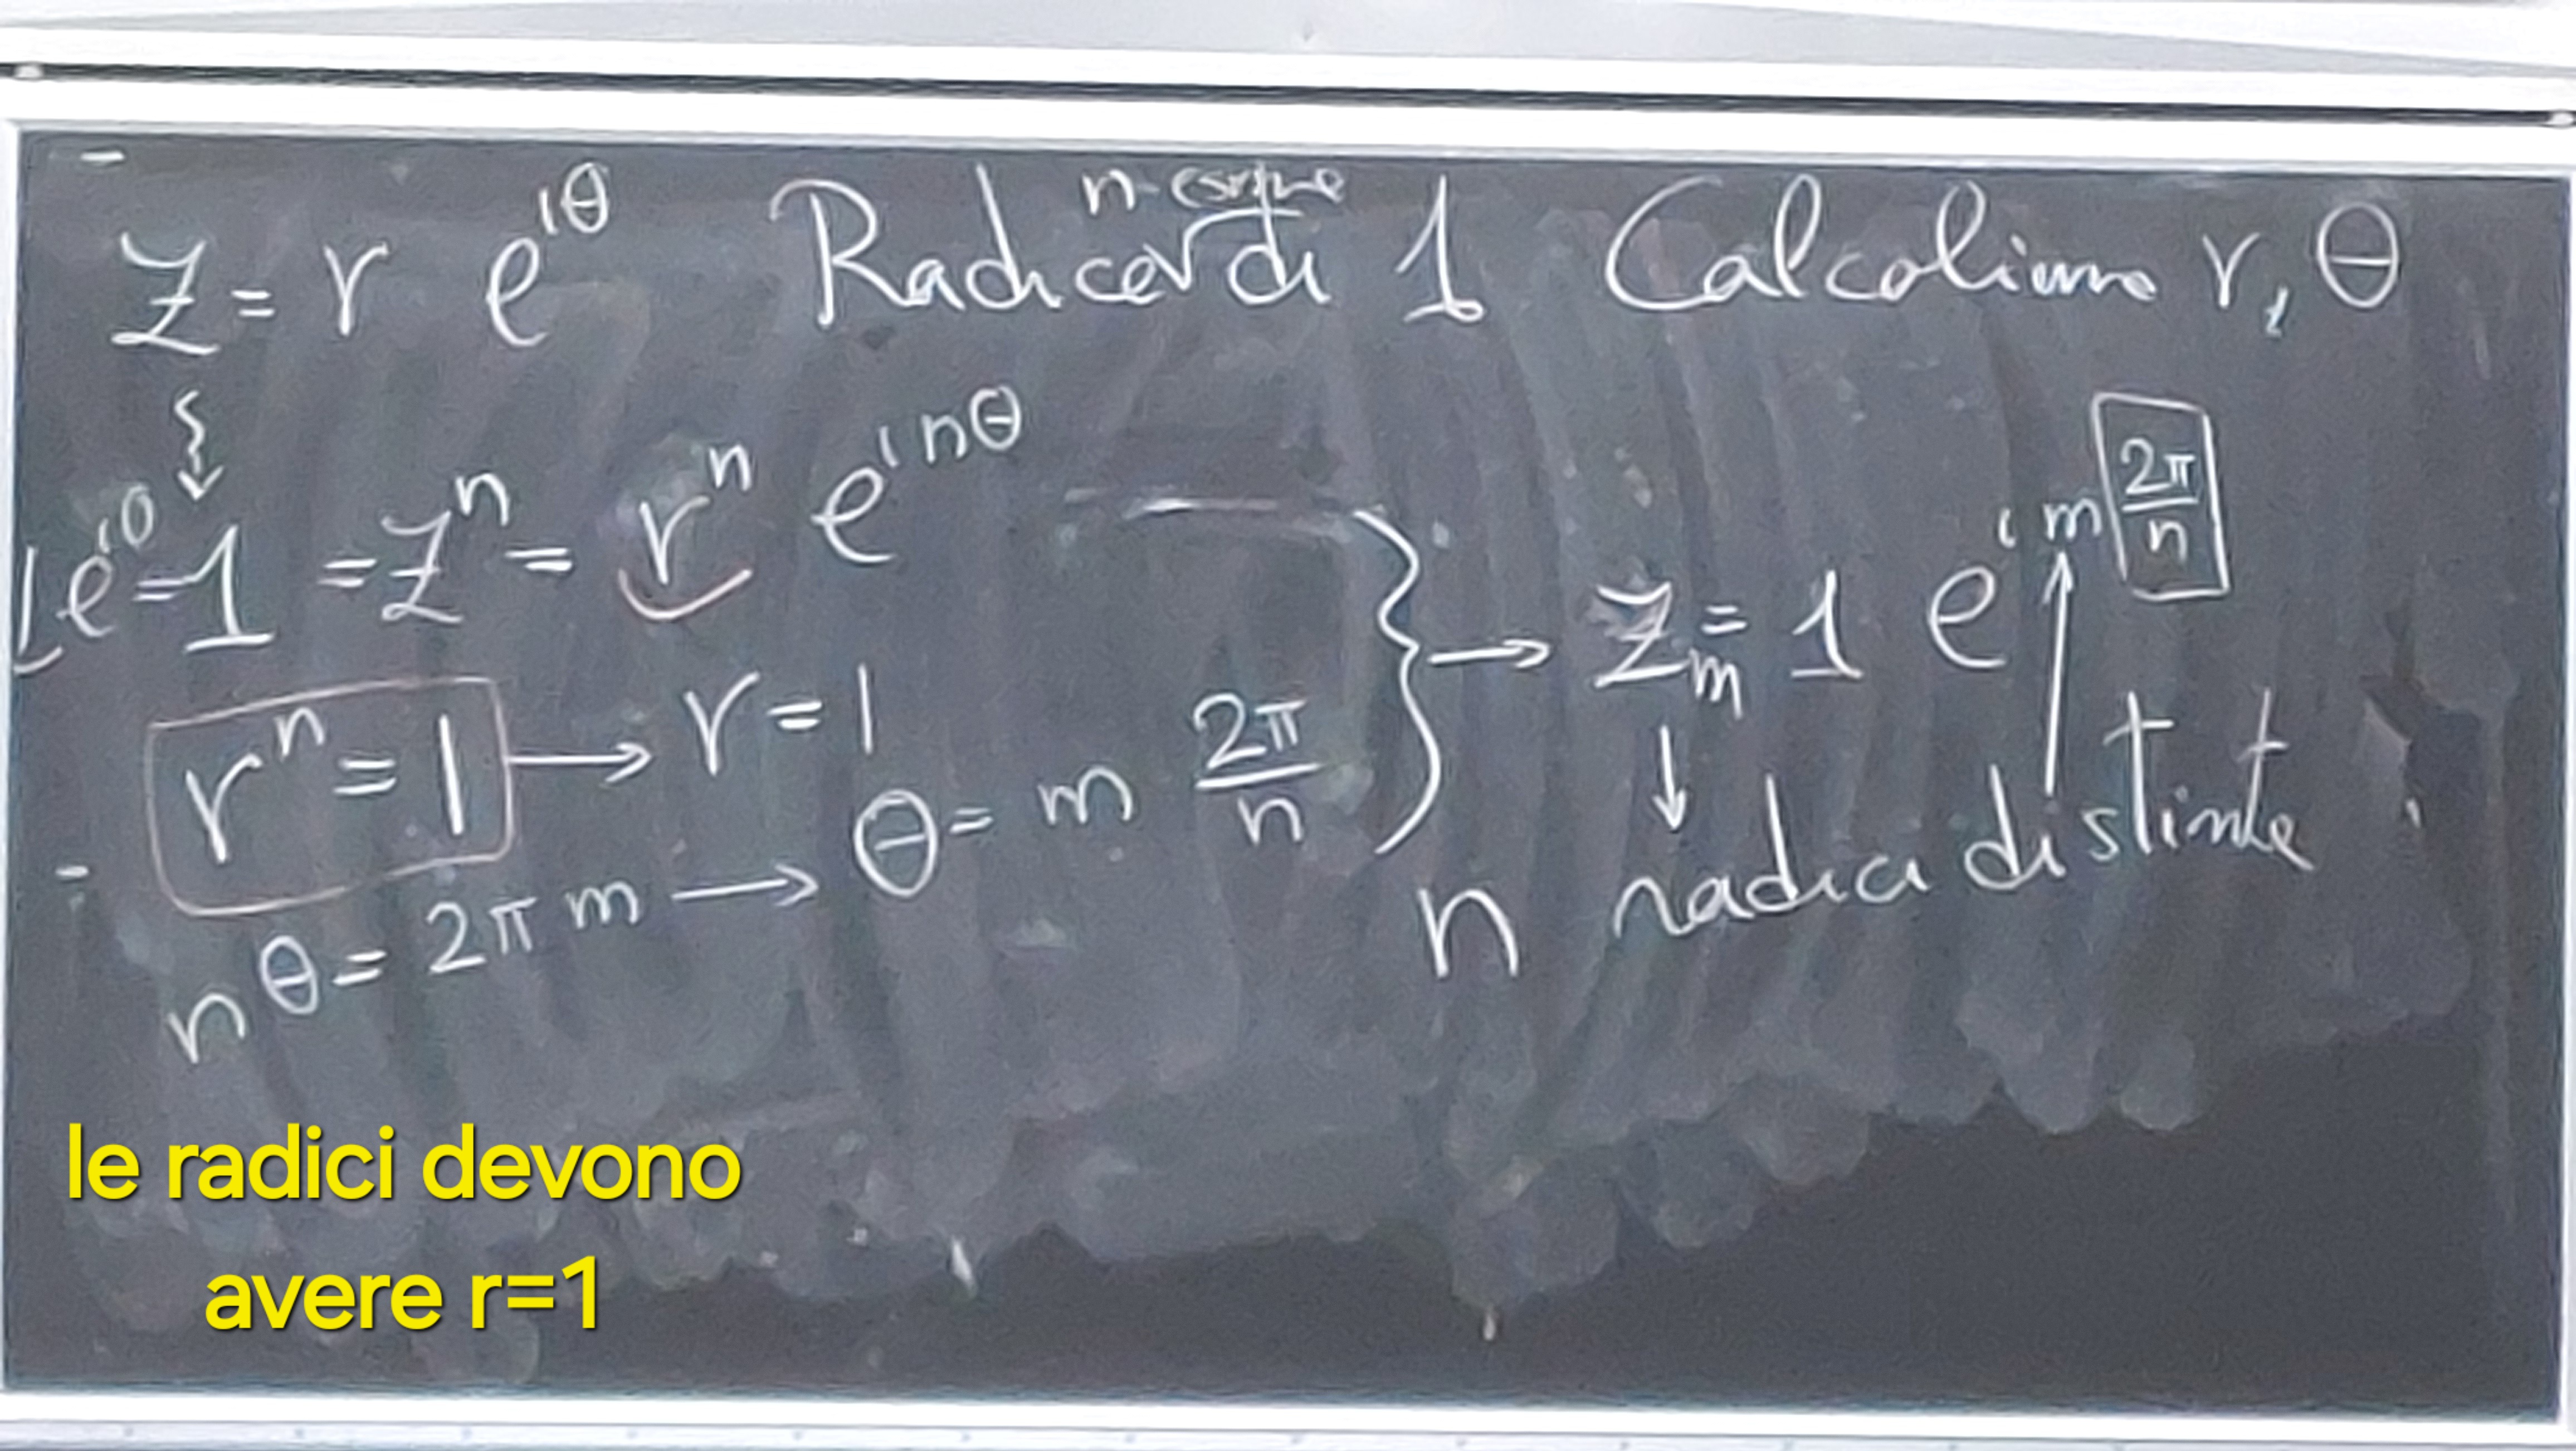 z = r e^{iθ} Radici n-esime di 1 Calcoliamo r, θ
1e^{i0} = 1 = z^n = r^n e^{inθ}
r^n = 1 → r = 1
nθ = 2πm → θ = m 2π/n
} → z_m = 1 e^{i m 2π/n}
↓
n radici distinte
le radici devono
avere r=1